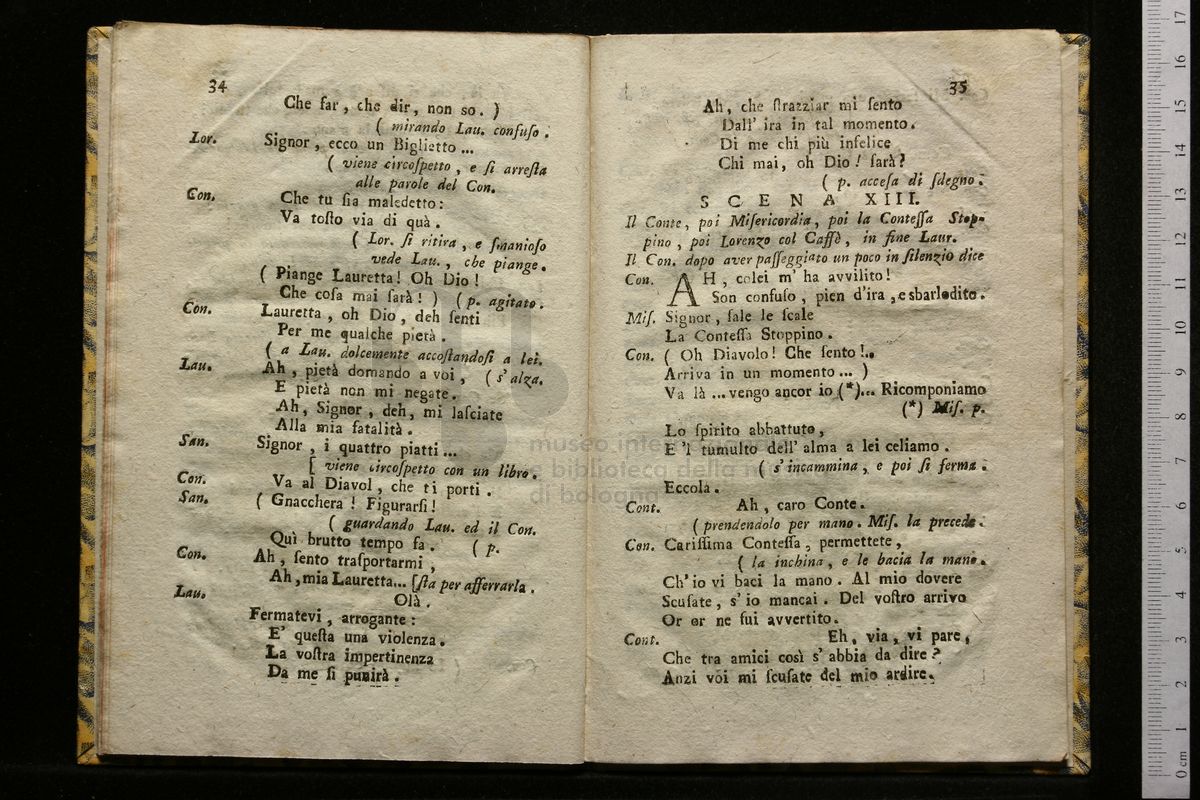 34
Che far, che dir, non so. )
( mirando Lau. confuso.
Lor. Signor, ecco un Biglietto ...
( viene circoſpetto, e ſi arreſta
alle parole del Con.
Con. Che tu ſia maledetto:
Va toſto via di quà.
( Lor. ſi ritira, e ſmanioſo
vede Lau., che piange.
( Piange Lauretta! Oh Dio!
Che coſa mai ſarà! ) ( p. agitato.
Con. Lauretta, oh Dio, deh ſenti
Per me qualche pietà.
( a Lau. dolcemente accoſtandoſi a lei.
Lau. Ah, pietà domando a voi, ( s'alza.
E pietà non mi negate.
Ah, Signor, deh, mi laſciate
Alla mia fatalità.
San. Signor, i quattro piatti ...
[ viene circoſpetto con un libro.
Con. Va al Diavol, che ti porti.
San. ( Gnacchera! Figurarſi!
( guardando Lau. ed il Con.
Quì brutto tempo fa. ( p.
Con. Ah, ſento traſportarmi,
Ah, mia Lauretta... [ſta per afferrarla.
Lau. Olà.
Fermatevi, arrogante:
E' queſta una violenza.
La voſtra impertinenza
Da me ſi punirà.
35
Ah, che ſtrazziar mi ſento
Dall' ira in tal momento.
Di me chi più infelice
Chi mai, oh Dio! ſarà?
( p. acceſa di ſdegno.
SCENA XIII.
Il Conte, poi Miſericordia, poi la Conteſſa Stop-
pino, poi Lorenzo col Caffè, in fine Laur.
Il Con. dopo aver paſſeggiato un poco in ſilenzio dice
Con. AH, colei m' ha avvilito!
Son confuſo, pien d'ira, e sbarlodito.
Miſ. Signor, ſale le ſcale
La Conteſſa Stoppino.
Con. ( Oh Diavolo! Che ſento!..
Arriva in un momento... )
Va là ... vengo ancor io (*)... Ricomponiamo
(*) Miſ. p.
Lo ſpirito abbattuto,
E 'l tumulto dell' alma a lei celiamo.
( s'incammina, e poi ſi ferma.
Eccola.
Cont. Ah, caro Conte.
( prendendolo per mano. Miſ. la precede.
Con. Cariſſima Conteſſa, permettete,
( la inchina, e le bacia la mano.
Ch'io vi baci la mano. Al mio dovere
Scuſate, s'io mancai. Del voſtro arrivo
Or or ne fui avvertito.
Cont. Eh, via, vi pare,
Che tra amici così s' abbia da dire?
Anzi voi mi ſcuſate del mio ardire.
museo internazionale
e biblioteca della m
di bologna
0 cm 1 2 3 4 5 6 7 8 9 10 11 12 13 14 15 16 17